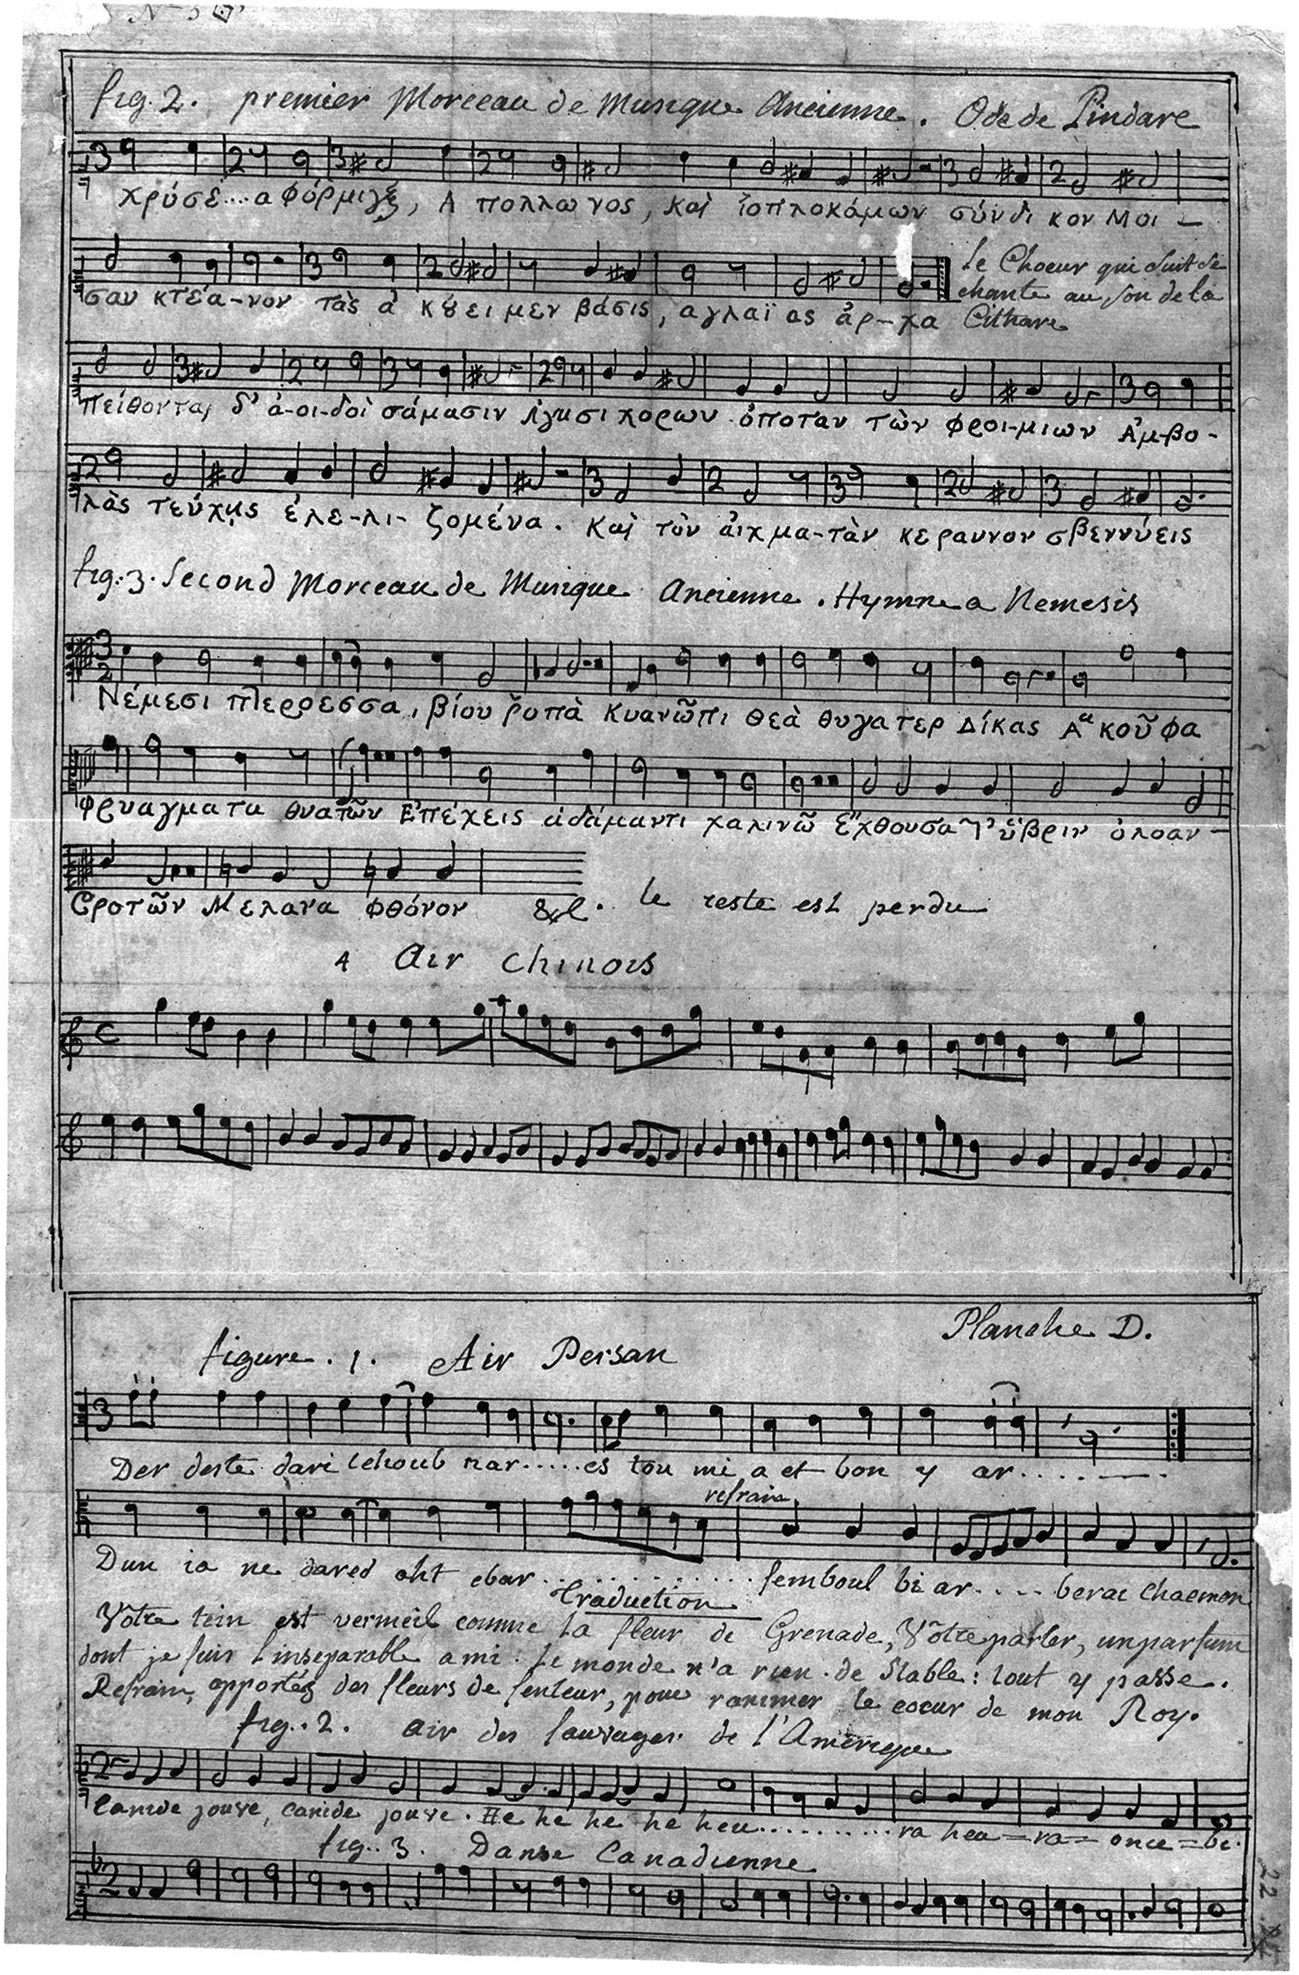 N° 3
fig. 2. premier Morceau de Musique Ancienne. Ode de Pindare
χρύσέ....α φόρμιγξ, Α πολλω νος, και ἰοπλοκάμων σύνδι κον Μοι –
σαν κτέα-νον τὰς ἀ κȣει μεν βάσις, αγλαϊ ας ἀρ-χα
le Choeur qui suit se
chante au son de la
Cithare
πείθονται δ' ἀ-οι-δοὶ σάμασιν ἁγησι χορων ὁποταν τῶν φροι-μιων Ἀμ-βο-
λὰς τεύχῃς ἐλε-λι-ζομένα. Και τὸν αἰχμα-τὰν κεραυνον σβεννύεις
fig. 3. Second Morceau de Musique Ancienne. Hymne a Nemesis
Νέμεσι πτερρεσσα, βίου ῥοπὰ Κυανῶπι θεὰ θυγατερ Δίκας Ἁ κοῦφα
φρυαγματα θνατῶν Ἐπέχεις ἀδάμαντι χαλινῶ ἔχθουσα δ' ὕβριν ὀλοαν –
βροτῶν Μελανα φθόνον &c. le reste est perdu
4 Air Chinois
Planche D.
figure. 1. Air Persan
Der deste dari tchoub nar.....es tou mi a et bon y ar..........
refrain
Dun ia ne dared oht ebar............ semboul bi ar.... berae chaemon
traduction
Vôtre tein est vermeil comme la fleur de Grenade, Vôtre parler, un parfum
dont je suis l'inseparable ami. le monde n'a rien de stable: tout y passe.
Refrain, apportés des fleurs de senteur, pour ranimer le coeur de mon Roy.
fig. 2. air des sauvages de l'Amerique
Canide jouve, canide jouve. He he he he heu..........ra heu = ra = once = bi.
fig. 3. Danse Canadienne
22